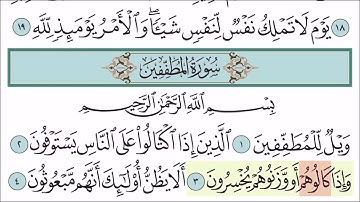 ١٨ يَوْمَ لَا تَمْلِكُ نَفْسٌ لِّنَفْسٍ شَيْـًٔا ۖ وَٱلْأَمْرُ يَوْمَئِذٍ لِّلَّهِ ١٩
سُورَةُ المُطَفِّفِينَ
بِسْمِ ٱللَّهِ ٱلرَّحْمَٰنِ ٱلرَّحِيمِ
وَيْلٌ لِّلْمُطَفِّفِينَ ١ ٱلَّذِينَ إِذَا ٱكْتَالُوا۟ عَلَى ٱلنَّاسِ يَسْتَوْفُونَ ٢
وَإِذَا كَالُوهُمْ أَو وَّزَنُوهُمْ يُخْسِرُونَ ٣ أَلَا يَظُنُّ أُو۟لَٰٓئِكَ أَنَّهُم مَّبْعُوثُونَ ٤